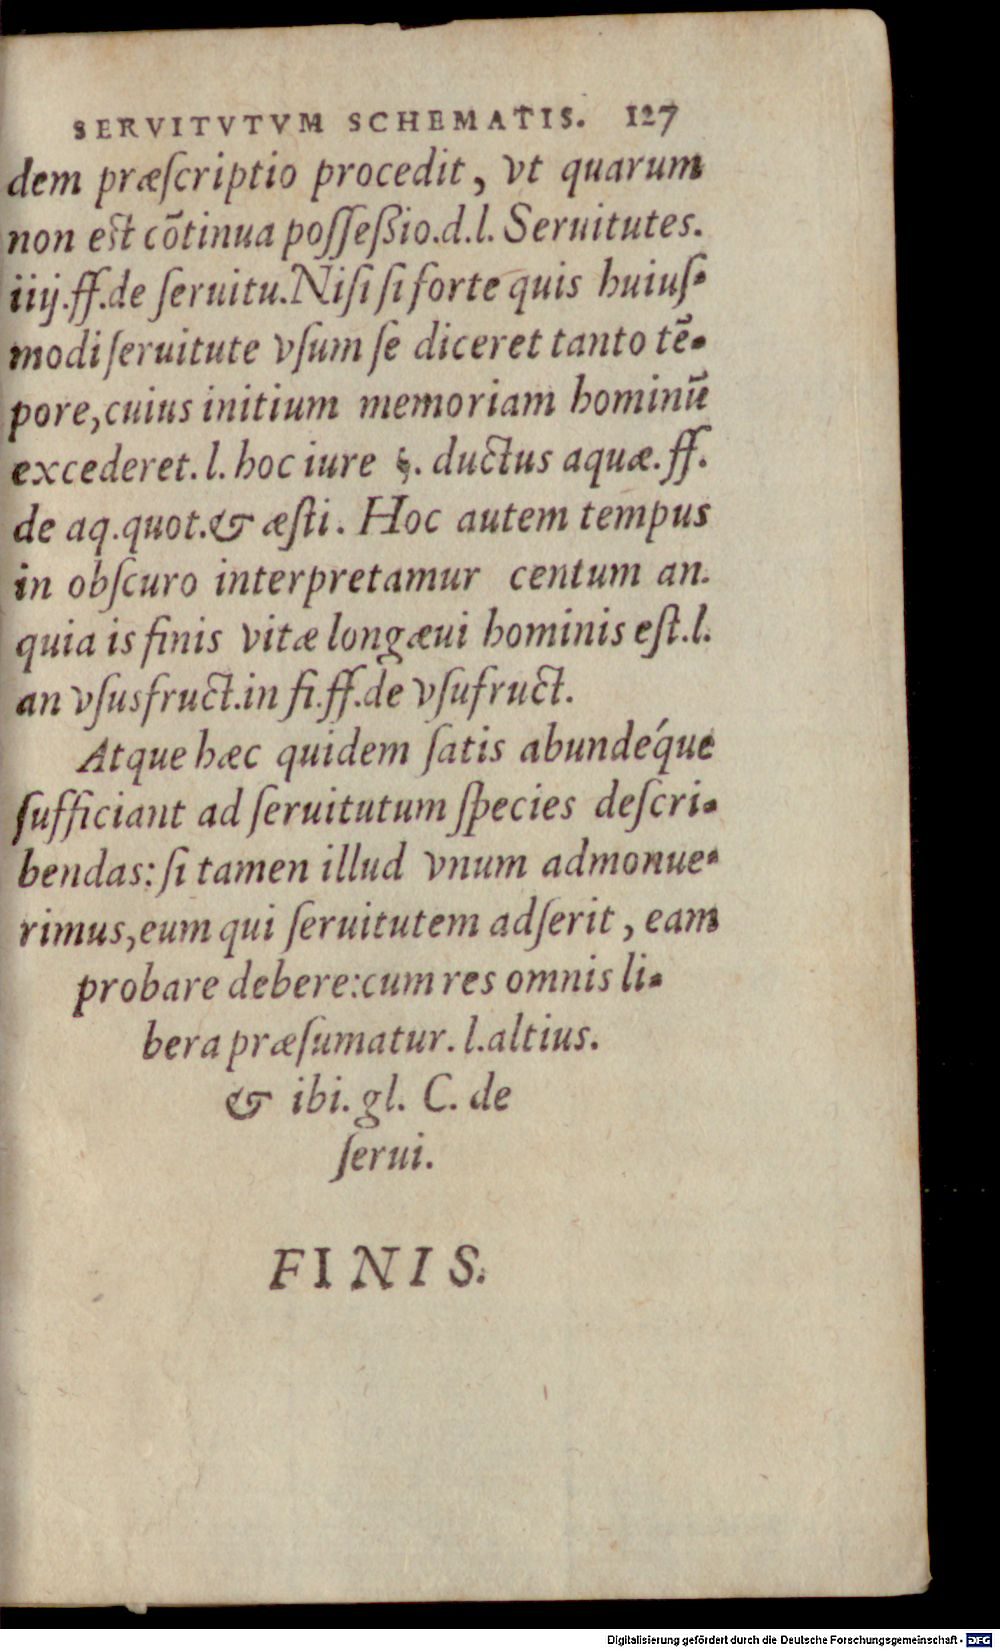 SERVITVTVM SCHEMATIS. 127
dem præſcriptio procedit, vt quarum
non est cõtinua poſſeßio.d.l. Seruitutes.
iiij.ff.de ſeruitu.Niſi ſi forte quis huiuſ-
modi ſeruitute vſum ſe diceret tanto tē-
pore,cuius initium memoriam hominū
excederet. l. hoc iure §. ductus aquæ. ff.
de aq.quot.& æſti. Hoc autem tempus
in obſcuro interpretamur centum an.
quia is finis vitæ longæui hominis eſt.l.
an vſusfruct.in fi.ff.de vſufruct.
Atque hæc quidem ſatis abundéque
ſufficiant ad ſeruitutum ſpecies deſcri-
bendas: ſi tamen illud vnum admonue-
rimus,eum qui ſeruitutem adſerit, eam
probare debere:cum res omnis li-
bera præſumatur. l.altius.
& ibi. gl. C. de
ſerui.
FINIS.
Digitalisierung gefördert durch die Deutsche Forschungsgemeinschaft - DFG